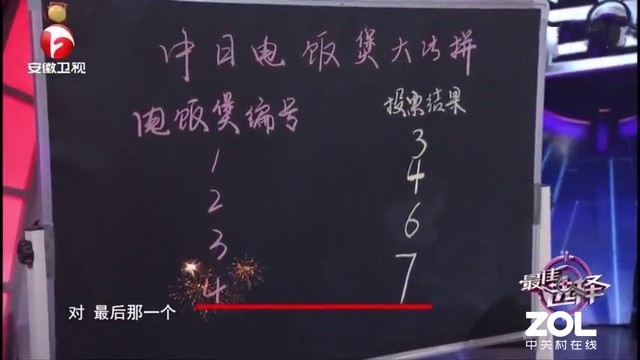 安徽卫视
中日电饭煲大比拼
电饭煲编号 投票结果
1 3
2 4
3 6
4 7
对 最后那一个
ZOL
中关村在线